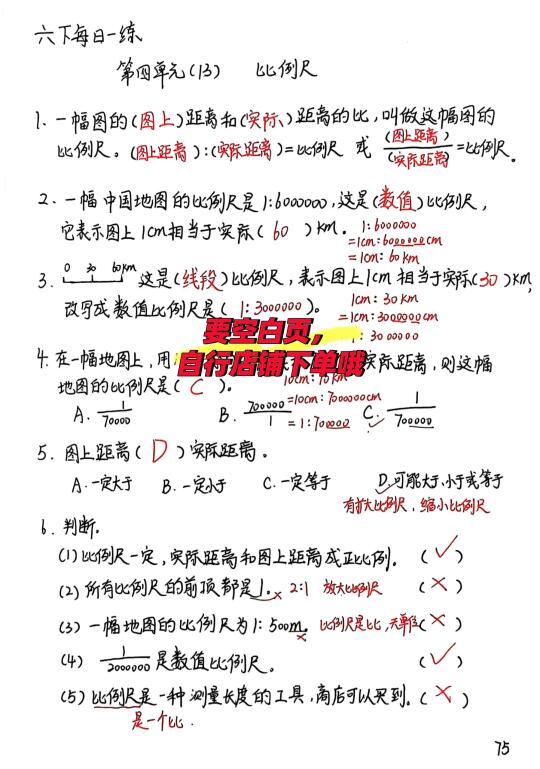 六下每日一练
第四单元(13) 比例尺
1. 一幅图的(图上)距离和(实际)距离的比,叫做这幅图的
比例尺。(图上距离):(实际距离)=比例尺 或 (图上距离)/(实际距离)=比例尺。
2. 一幅中国地图的比例尺是1:6000000,这是(数值)比例尺,
它表示图上1cm相当于实际(60)km。 1:6000000
=1cm:6000000cm
=1cm:60km
3. 0 30 60km 这是(线段)比例尺,表示图上1cm相当于实际(30)km,
改写成数值比例尺是(1:3000000)。 1cm:30km
=1cm:3000000cm
1:3000000
要空白页,
自行店铺下单哦
4. 在一幅地图上,用 实际距离,则这幅
地图的比例尺是(C)。 10cm:70km
=10cm:7000000cm
=1:700000
A. 1/70000 B. 700000/1 C. 1/700000
5. 图上距离(D)实际距离。
A. 一定大于 B. 一定小于 C. 一定等于 D. 可能大于、小于或等于
有扩大比例尺,缩小比例尺
6. 判断。
(1) 比例尺一定,实际距离和图上距离成正比例。(✓)
(2) 所有比例尺的前项都是1。× 2:1 放大比例尺 (×)
(3) 一幅地图的比例尺为1:500m。× 比例尺是比,无单位 (×)
(4) 1/2000000 是数值比例尺。(✓)
(5) 比例尺是一种测量长度的工具,商店可以买到。(×)
是一个比.
75